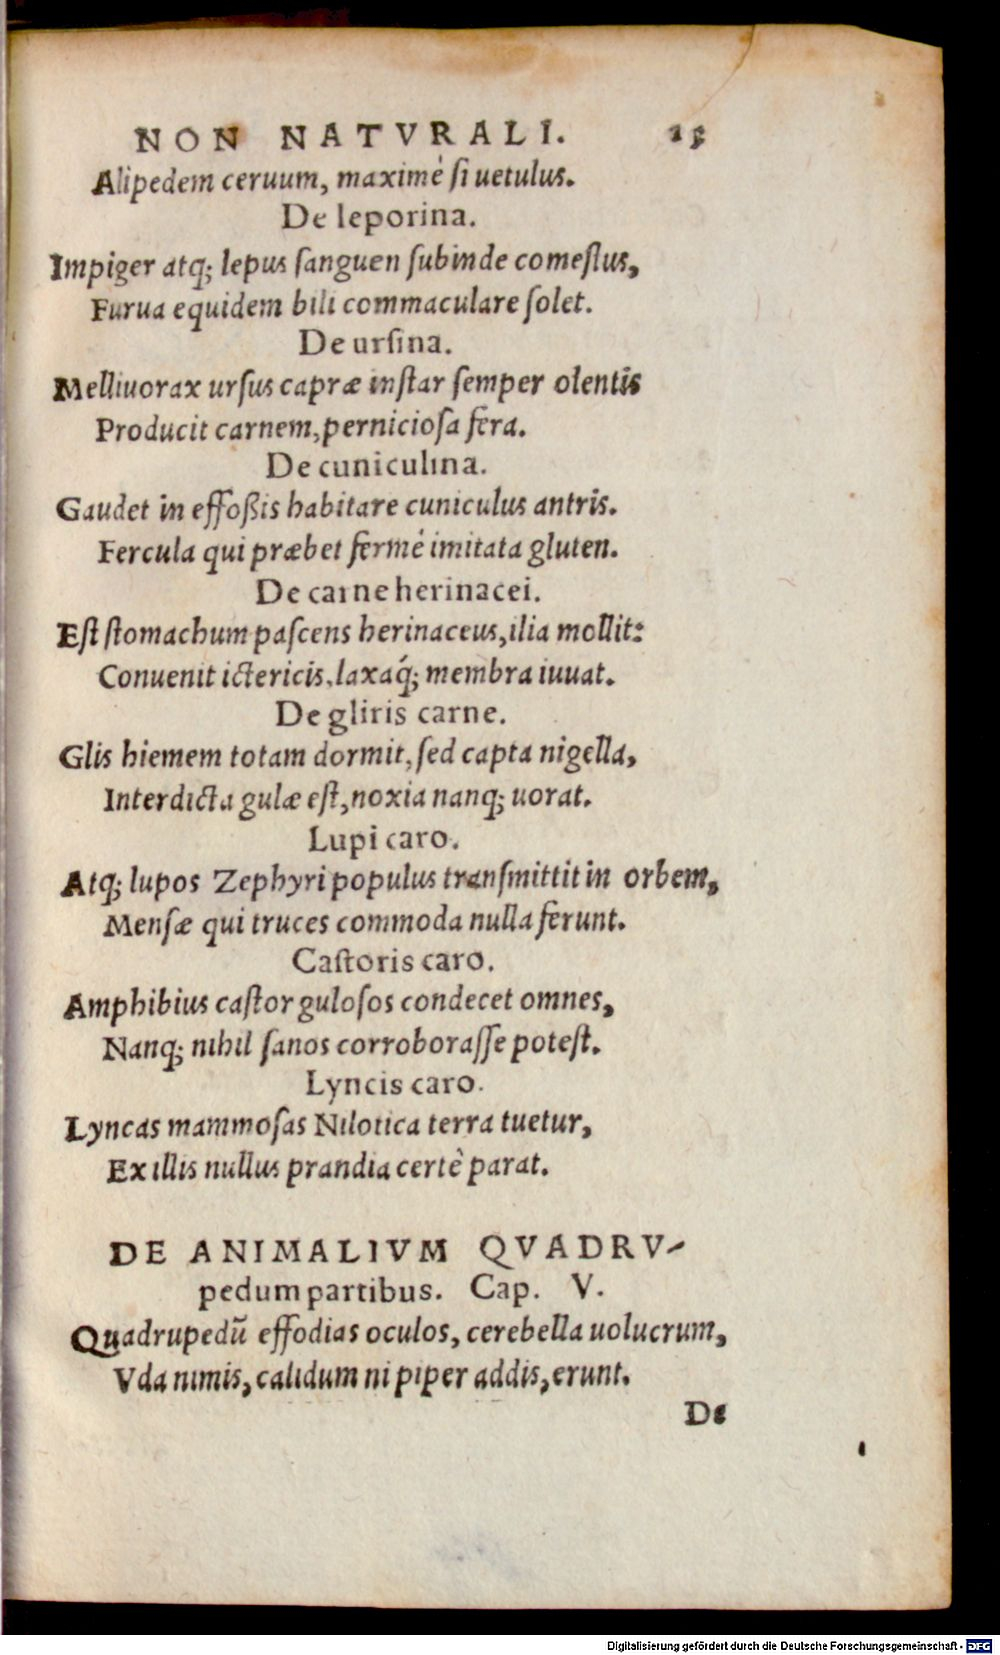 NON NATVRALI. 13
Alipedem ceruum, maximè si uetulus.
De leporina.
Impiger atq; lepus sanguen subinde comestus,
Furua equidem bili commaculare solet.
De ursina.
Melliuorax ursus capræ instar semper olentis
Producit carnem, perniciosa fera.
De cuniculina.
Gaudet in effoßis habitare cuniculus antris.
Fercula qui præbet fermè imitata gluten.
De carne herinacei.
Est stomachum pascens herinaceus, ilia mollit:
Conuenit ictericis, laxaq́; membra iuuat.
De gliris carne.
Glis hiemem totam dormit, sed capta nigella,
Interdicta gulæ est, noxia nanq; uorat.
Lupi caro.
Atq; lupos Zephyri populus transmittit in orbem,
Mensæ qui truces commoda nulla ferunt.
Castoris caro.
Amphibius castor gulosos condecet omnes,
Nanq; nihil sanos corroborasse potest.
Lyncis caro.
Lyncas mammosas Nilotica terra tuetur,
Ex illis nullus prandia certè parat.
DE ANIMALIVM QVADRV-
pedum partibus. Cap. V.
Quadrupedū effodias oculos, cerebella uolucrum,
Vda nimis, calidum ni piper addis, erunt.
De
Digitalisierung gefördert durch die Deutsche Forschungsgemeinschaft - DFG